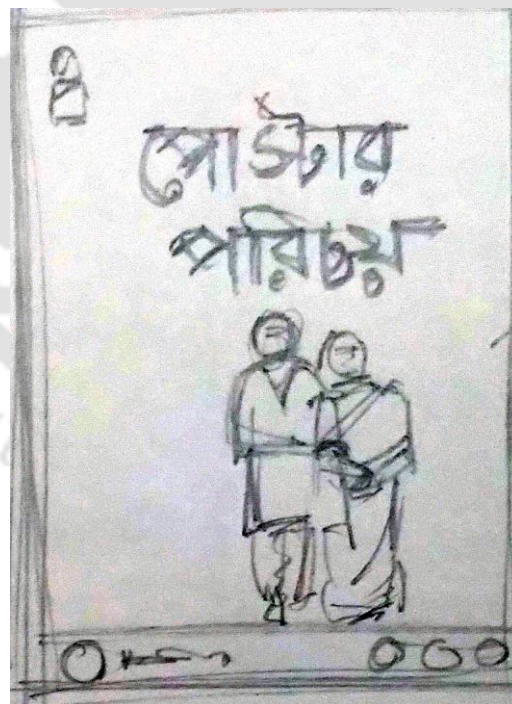 পোস্টার
পরিচয়